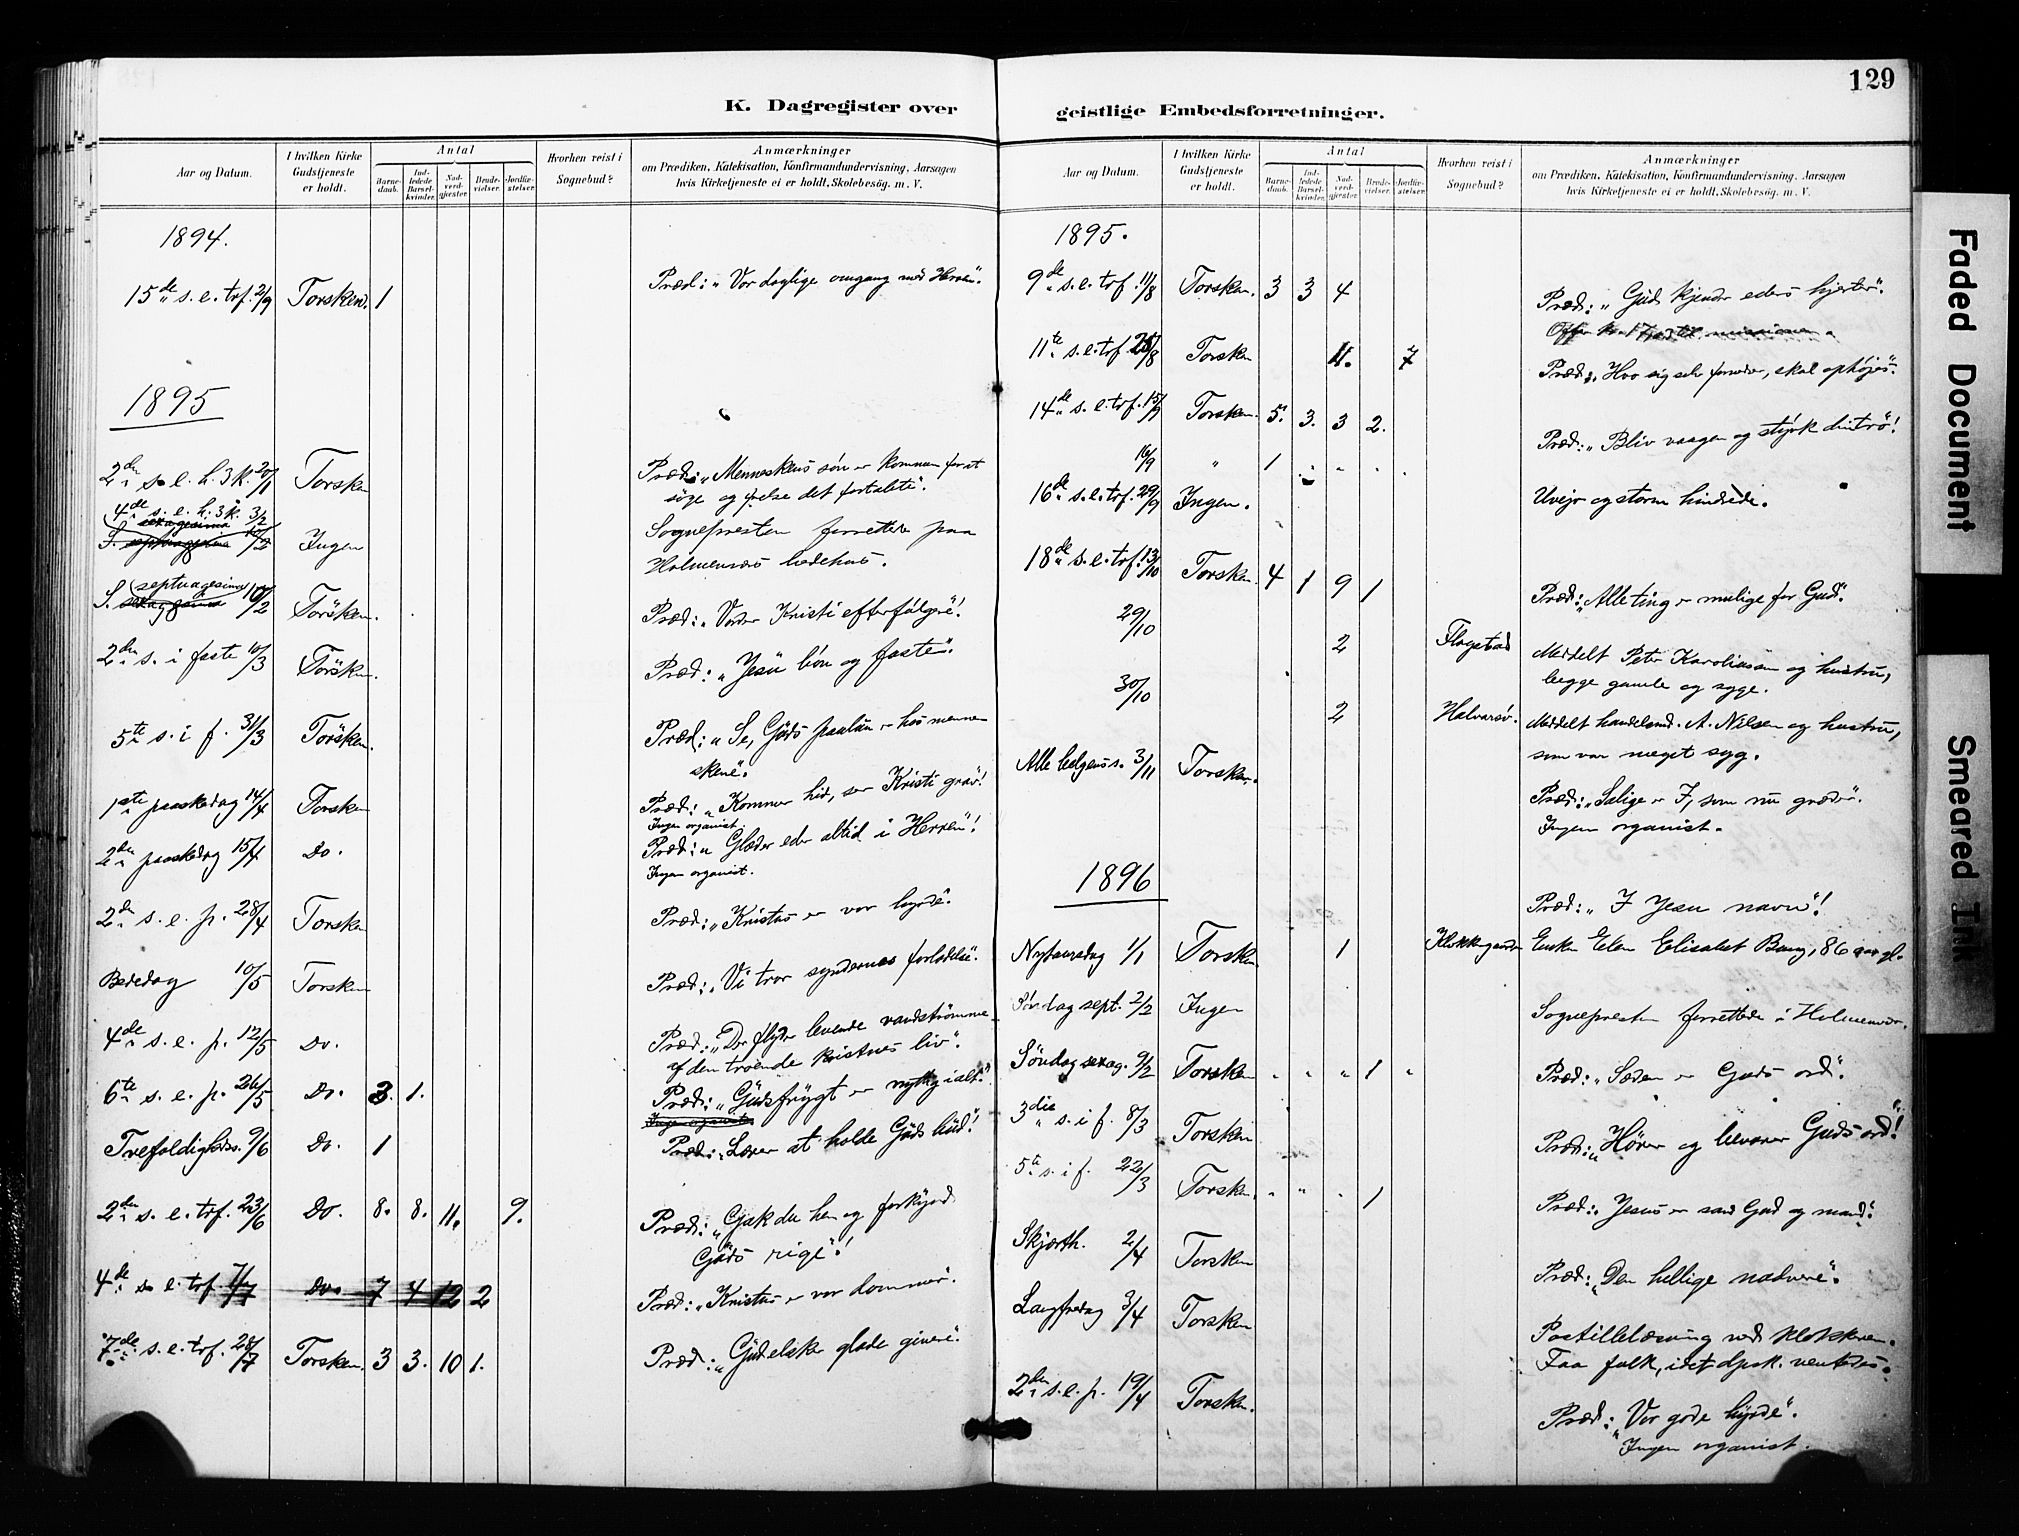 129
K. Dagregister over
Aar og Datum.
I hvilken Kirke Gudstjeneste er holdt.
Antal
Barne-daab.
Ind-ledede Barsel-kvinder.
Nad-verd-gjester.
Brude-vielser.
Jordfæ-stelser.
Hvorhen reist i Sognebud?
Anmærkninger
om Prædiken, Katekisation, Konfirmandundervisning, Aarsagen
hvis Kirketjeneste ei er holdt, Skolebesøg. m. V.
1894.
15de s. e. trf. 2/9 Torsken. 1 Præd: "Vor daglige omgang med Herren".
1895
2den s. e. h. 3 k. 20/1 Torsken Præd: "Menneskens søn er kommen for at
søge og frelse det fortabte".
4de s. e. h. 3 k. 3/2
S. Ingen Sognepresten forrettede paa
Holmenværs bedehus.
S. septuagesima 10/2 Torsken. Præd: "Vorder Kristi efterfølgere"!
2den s. i faste 10/3 Torsken. Præd: "Jesu bøn og faste".
5te s. i f. 31/3 Torsken. Præd: "Se, Guds paulun er hos menne
skene".
1ste paaskedag 14/4 Torsken Præd: "Kommer hid, ser Kristi grav"!
Ingen organist.
2den paaskedag 15/4 Do. Præd: "Glæder eder altid i Herren"!
Ingen organist.
2den s. e. p. 28/4 Torsken Præd: "Kristus er vor hyrde".
Bededag 10/5 Torsken Præd: "Vi tror syndernes forladelse".
4de s. e. p. 12/5 Do. Præd: "Der flyder levende vandstrømme
af den troende kristnes liv".
6te s. e. p. 26/5 Do. 3. 1. Præd: "Gudsfrygt er nyttig i alt".
Ingen organist
Trefoldigheds. 9/6 Do. 1 Præd: "Lærer at holde Guds bud"!
2den s. e. trf. 23/6 Do. 8. 8. 11. 9. Præd: "Gak du hen og forkynd
Guds rige"!
4de s. e. trf. 7/7 Do. 7 4 12 2 Præd: "Kristus er vor dommer".
7de s. e. trf. 28/7 Torsken. 3 3. 10 1. Præd: "Gud elsker glade givere".
geistlige Embedsforretninger.
Aar og Datum.
I hvilken Kirke Gudstjeneste er holdt.
Antal
Barne-daab.
Ind-ledede Barsel-kvinder.
Nad-verd-gjester.
Brude-vielser.
Jordfæ-stelser.
Hvorhen reist i Sognebud?
Anmærkninger
om Prædiken, Katekisation, Konfirmandundervisning, Aarsagen
hvis Kirketjeneste ei er holdt, Skolebesøg. m. V.
1895.
9de s. e. trf. 11/8 Torsken. 3 3 4 Præd: "Gud kjender eders hjerter".
11te s. e. trf. 25/8 Torsken 11. 7 Præd: "Hvo sig selv fornedrer, skal ophøjes".
14de s. e. trf. 15/9 Torsken. 5. 3. 3 2. Præd: "Bliv vaagen og styrk din tro"!
16/9 " 1 . " . .
16de s. e. trf. 29/9 Ingen. Uvejr og storm hindrede.
18de s. e. trf. 13/10 Torsken. 4 1 9 1 Præd: "Alle ting er mulige for Gud".
29/10 2 Flagstad Meddelt Peter Karoliussen og hustru,
begge gamle og syge.
30/10 2 Halvarsøv. Meddelt handelsmd. A. Nilsen og hustru,
som var meget syg.
Alle helgens s. 3/11 Torsken. Præd: "Salige er I, som nu græder".
Ingen organist.
1896
Præd: "I Jesu navn"!
Nytaarsdag 1/1 Torsken 1 Klokkergaarden Enken Elen Elisabet Bang, 86 aar gl.
Søndag sept. 2/2 Ingen Sognepresten forrettede i Holmenvær.
Søndag sexag. 9/2 Torsken " " " 1 " Præd: "Sæden er Guds ord".
3die s. i f. 8/3 Torsken Præd: "Hører og bevarer Guds ord"!
5te s. i f. 22/3 Torsken. " " " 1 Præd: "Jesus er sand Gud og mand".
Skjærth. 2/4 Torsken Præd: "Den hellige nadvere".
Langfredag 3/4 Torsken Postillelæsning ved klokkeren.
Faa folk, idet dpsk. ventedes.
2den s. e. p. 19/4 Torsken. Præd: "Vor gode hyrde".
Ingen organist.
Faded Document
Smeared Ink